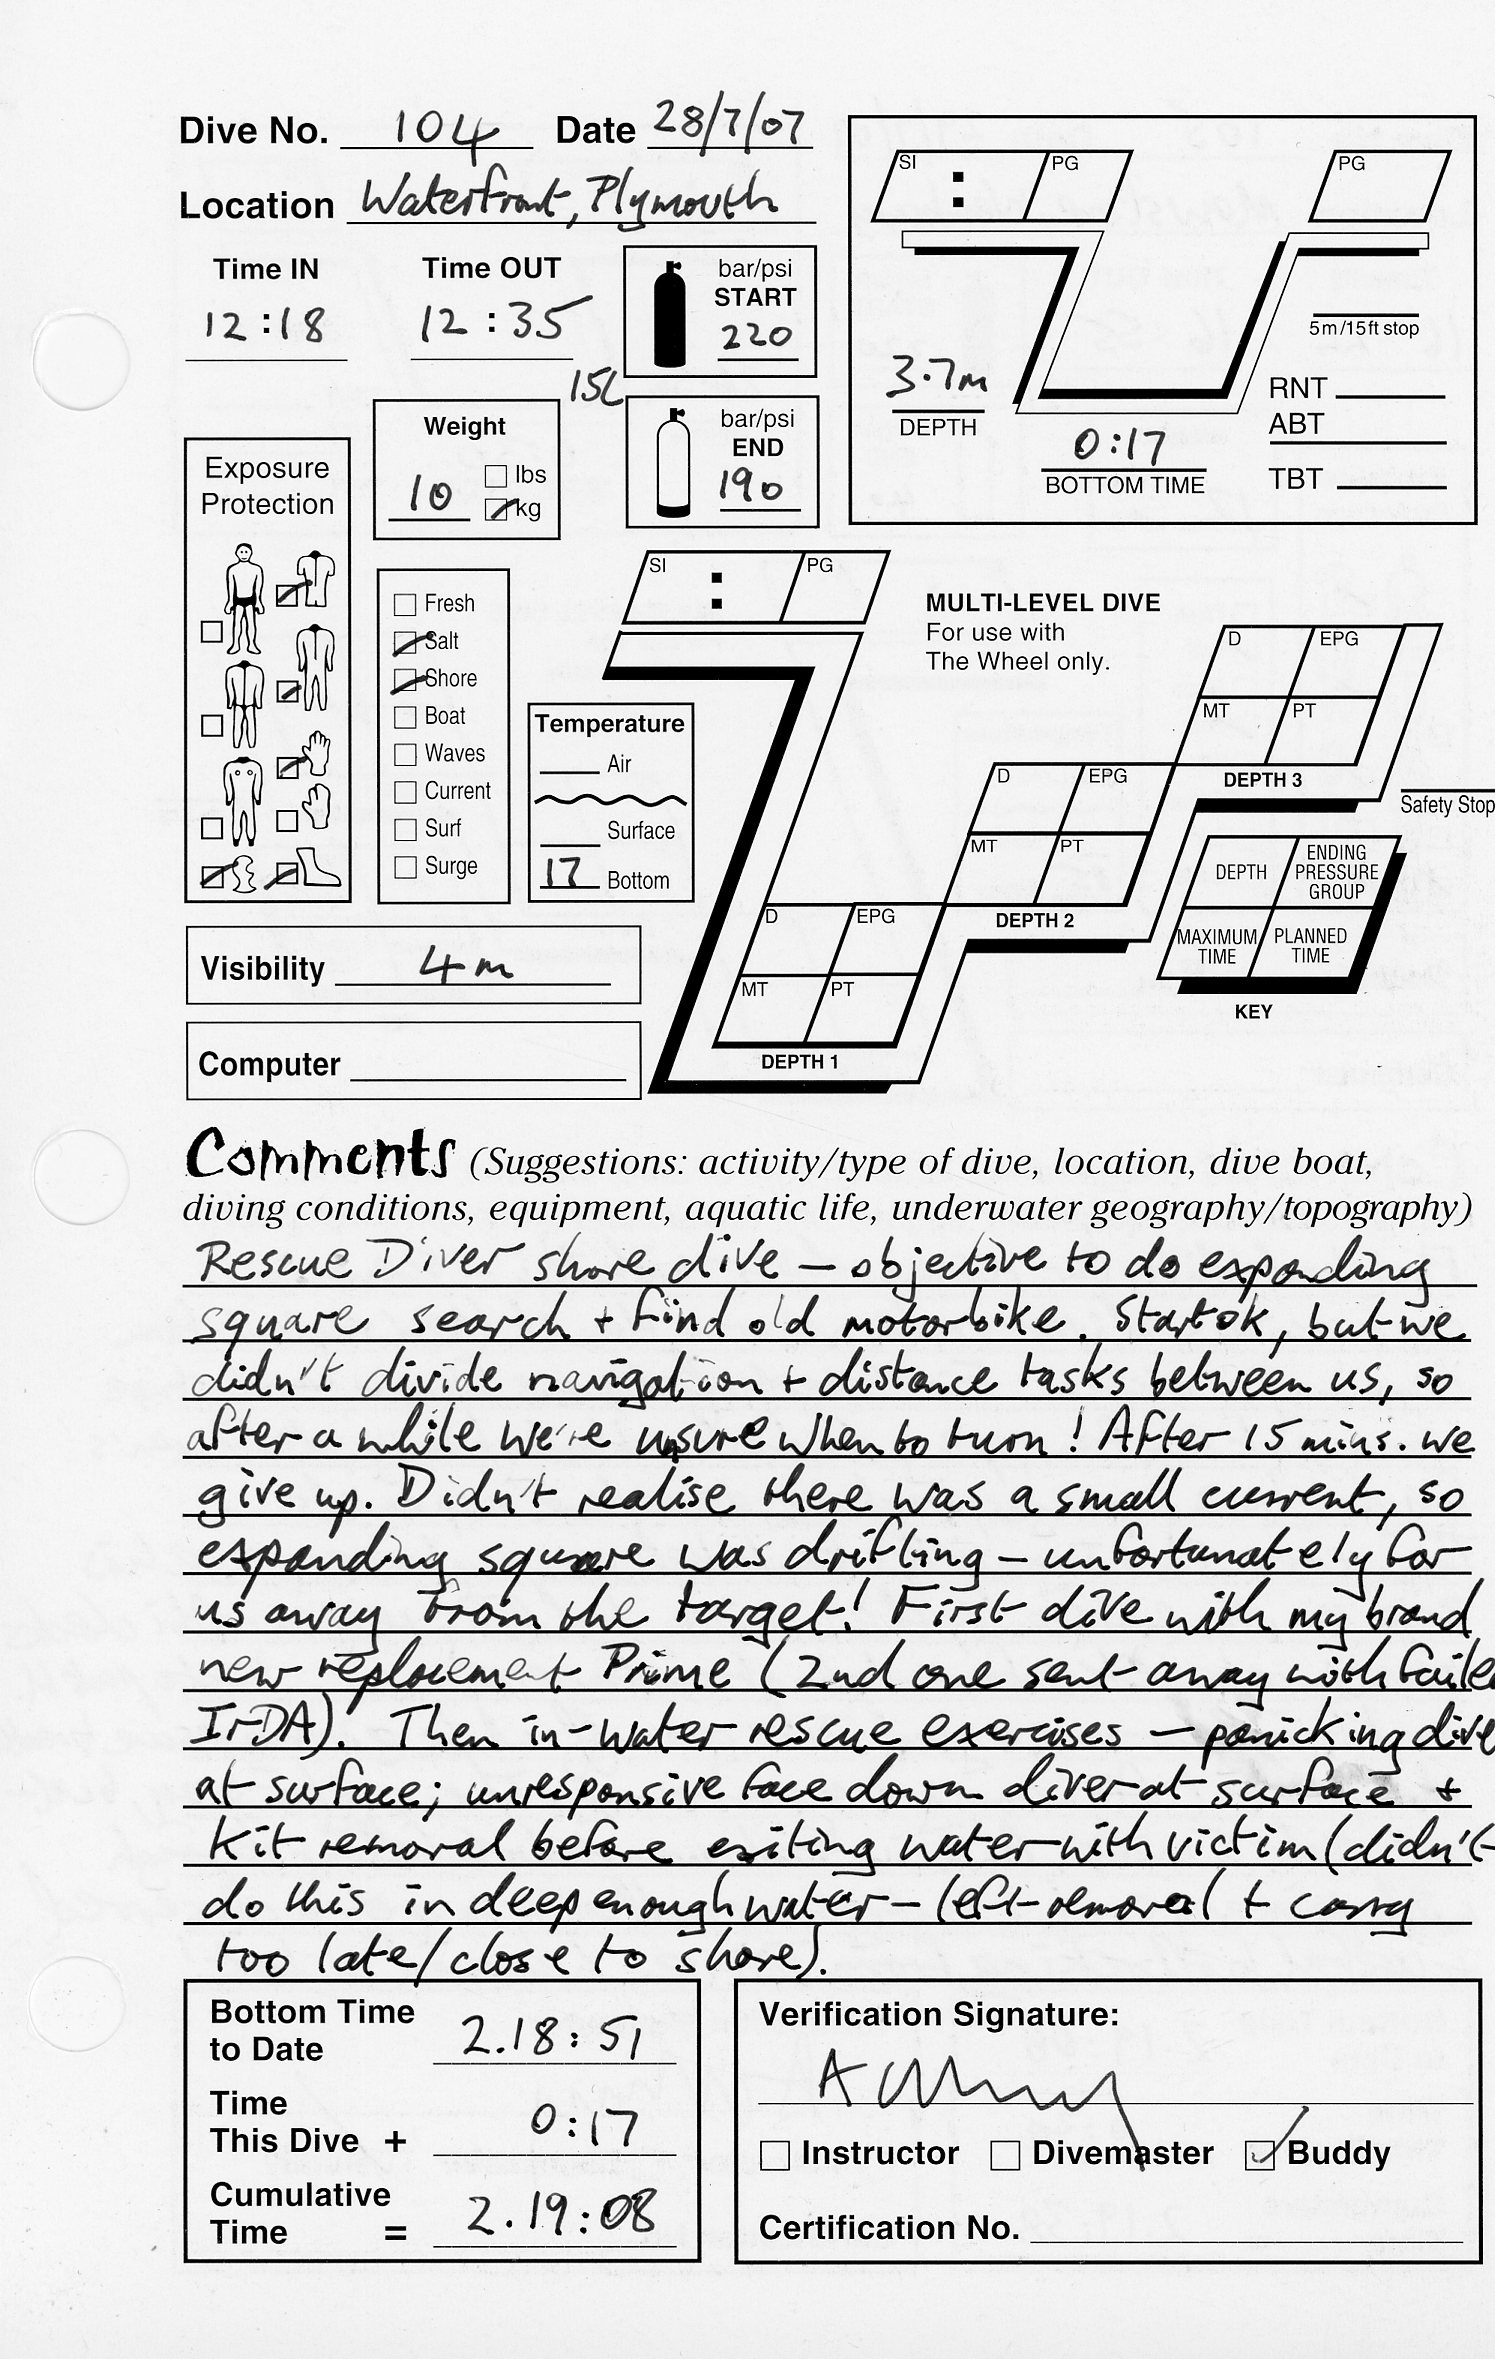 Dive No. 104 Date 28/7/07
Location Waterfront, Plymouth
Time IN Time OUT
12:18 12:35
bar/psi
START
220
15L
bar/psi
END
190
Weight
10
lbs
kg
Exposure
Protection
Fresh
Salt
Shore
Boat
Waves
Current
Surf
Surge
Temperature
Air
Surface
17 Bottom
Visibility 4m
Computer
SI : PG
PG
5m/15ft stop
3.7m
DEPTH
0:17
BOTTOM TIME
RNT
ABT
TBT
SI : PG
MULTI-LEVEL DIVE
For use with
The Wheel only.
D EPG
MT PT
DEPTH 3
Safety Stop
D EPG
MT PT
DEPTH 2
D EPG
MT PT
DEPTH 1
DEPTH
ENDING
PRESSURE
GROUP
MAXIMUM
TIME
PLANNED
TIME
KEY
Comments (Suggestions: activity/type of dive, location, dive boat,
diving conditions, equipment, aquatic life, underwater geography/topography)
Rescue Diver shore dive – objective to do expanding
square search + find old motorbike. Start OK, but we
didn't divide navigation + distance tasks between us, so
after a while we're unsure when to turn! After 15 mins. we
give up. Didn't realise there was a small current, so
expanding square was drifting – unfortunately for
us away from the target! First dive with my brand
new replacement Prime (2nd one sent away with faile
IrDA). Then in-water rescue exercises – panicking dive
at surface; unresponsive face down diver at surface +
kit removal before exiting water with victim (didn't
do this in deep enough water – left removal + carry
too late/close to shore).
Bottom Time
to Date 2.18:51
Time
This Dive + 0:17
Cumulative
Time = 2.19:08
Verification Signature:
Instructor Divemaster Buddy
Certification No.